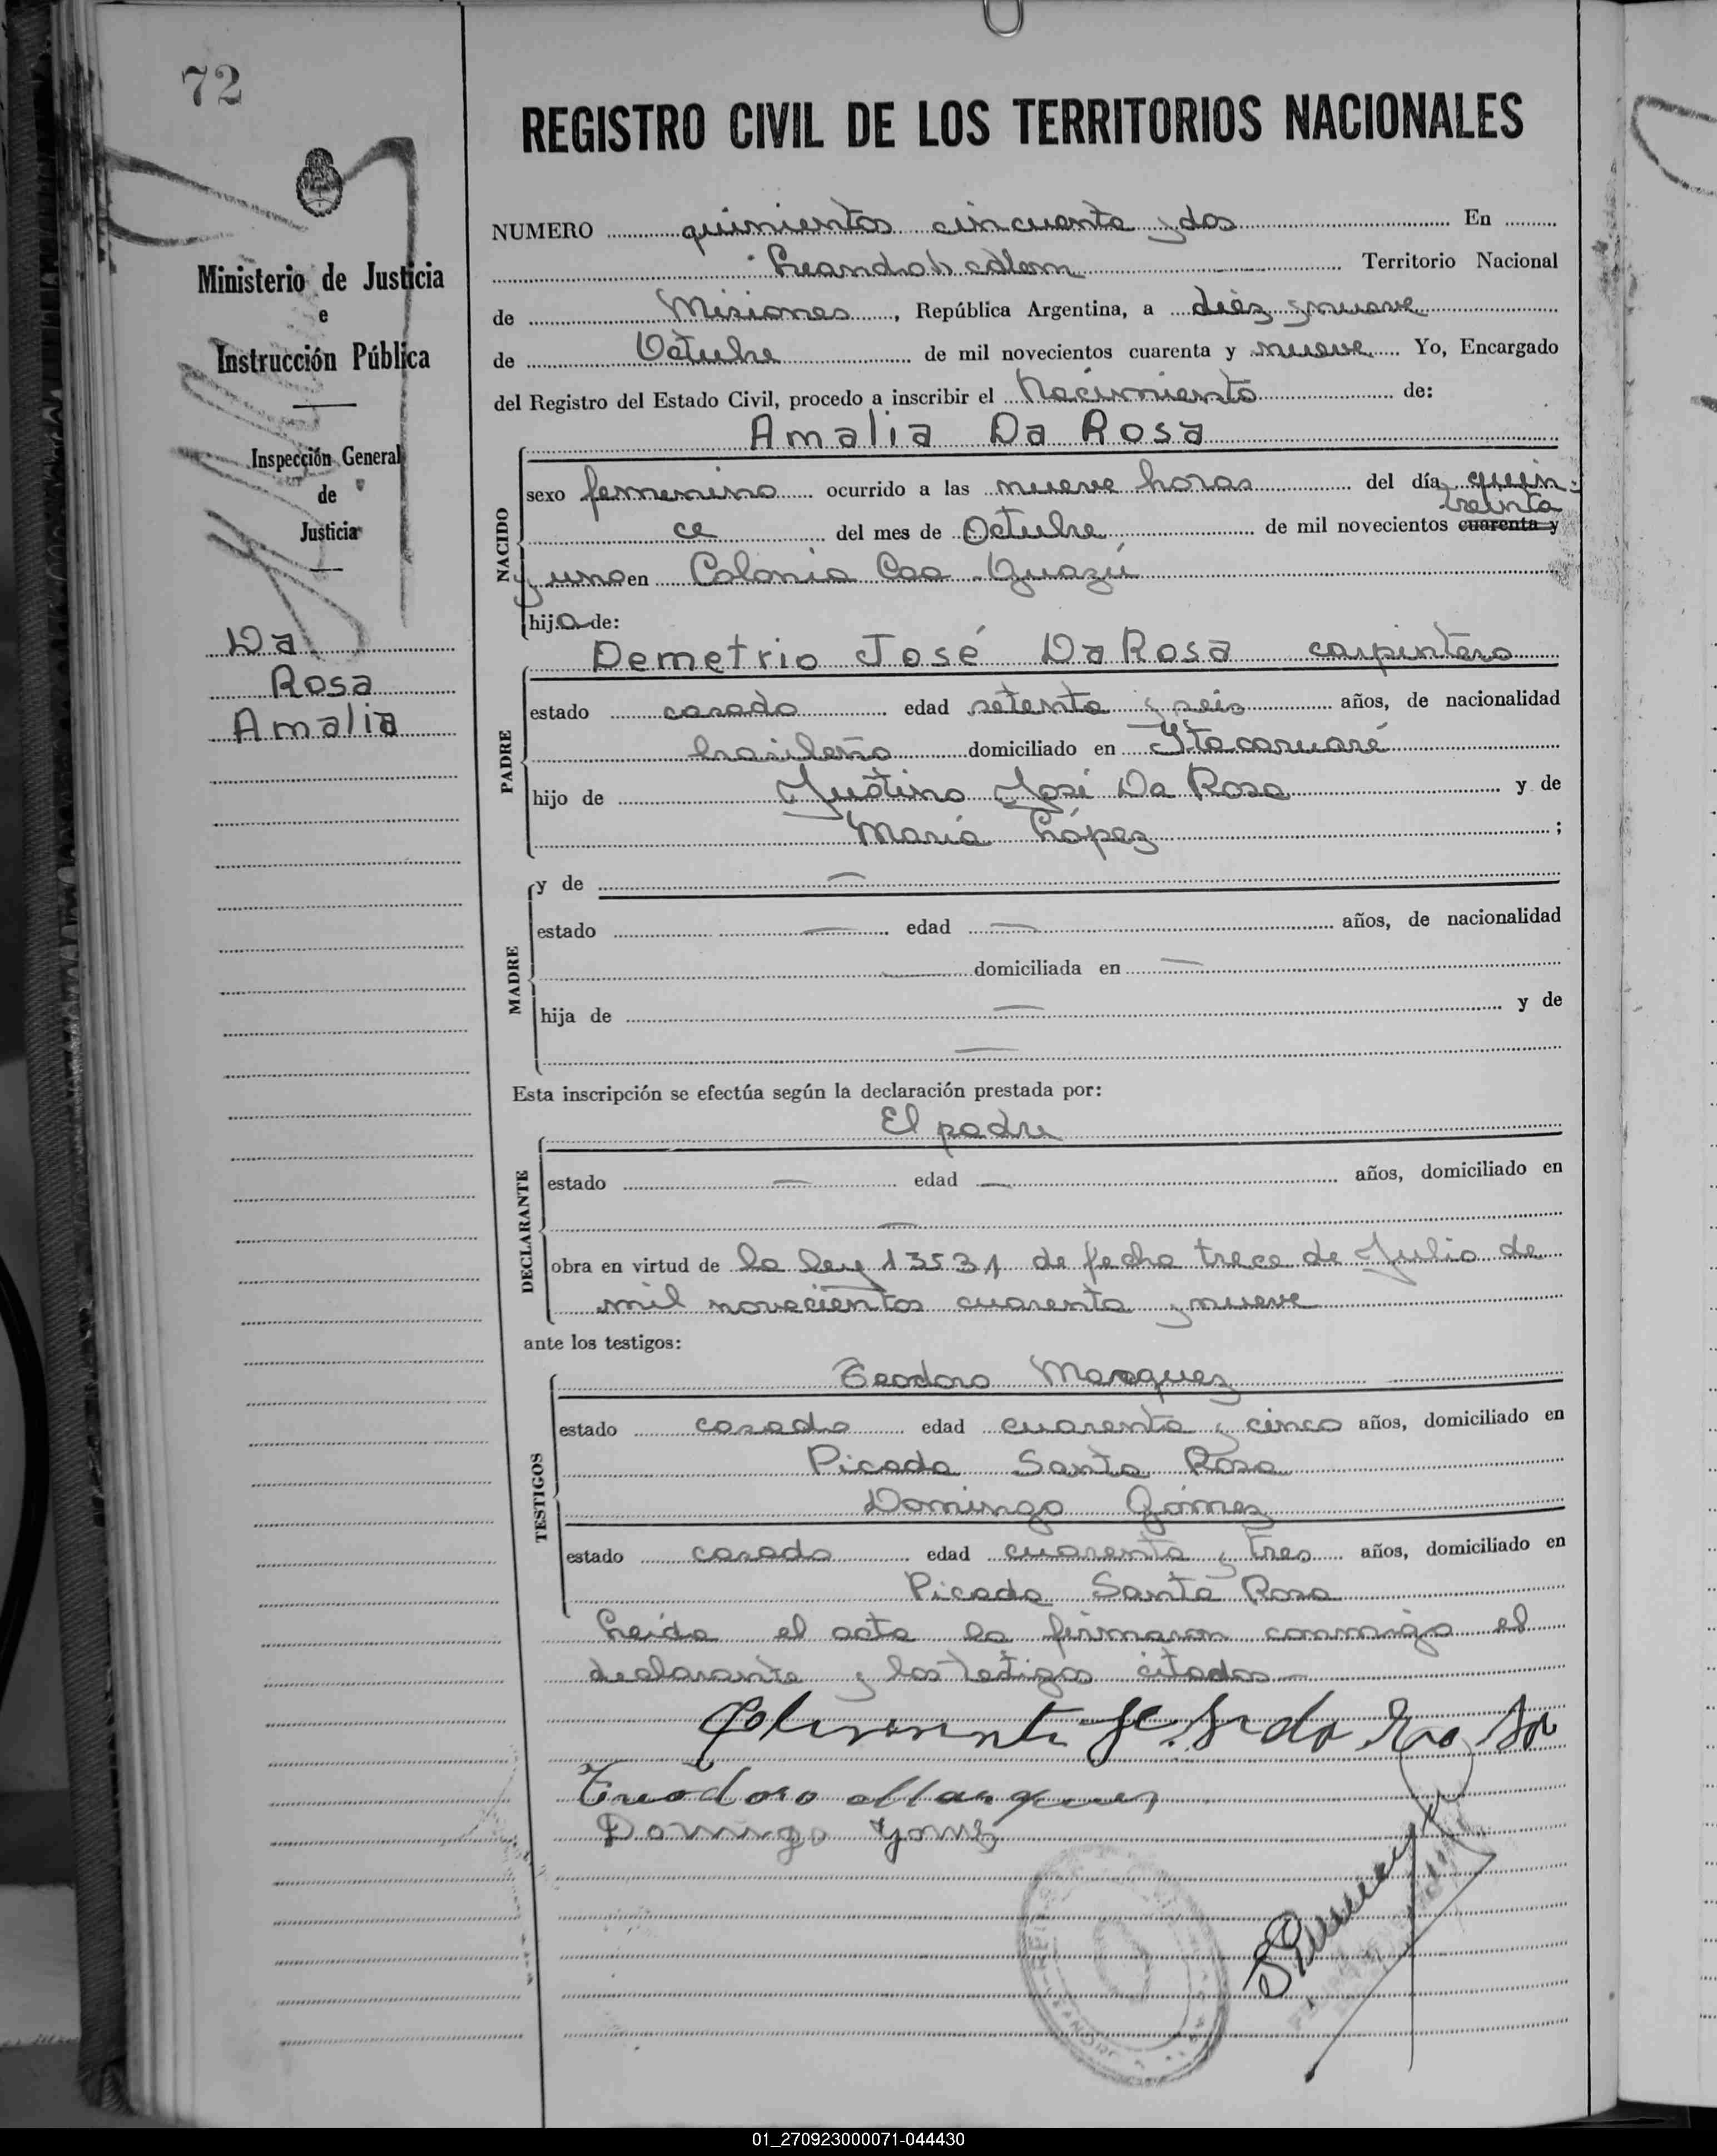 72
REGISTRO CIVIL DE LOS TERRITORIOS NACIONALES
Ministerio de Justicia
e
Instrucción Pública
Inspección General
de
Justicia
Da
Rosa
Amalia
NUMERO quinientos cincuenta y dos En
Leandro N. Alem Territorio Nacional
de Misiones, República Argentina, a diez y nueve
de Octubre de mil novecientos cuarenta y nueve Yo, Encargado
del Registro del Estado Civil, procedo a inscribir el Nacimiento de:
Amalia Da Rosa
NACIDO
sexo femenino ocurrido a las nueve horas del día quin-
treinta
ce del mes de Octubre de mil novecientos cuarenta y
y uno en Colonia Caa Guazú
hija de:
Demetrio José Da Rosa carpintero
PADRE
estado casado edad setenta y seis años, de nacionalidad
brasileño domiciliado en Itacaruaré
hijo de Justino José Da Rosa y de
María López ;
MADRE
y de —
estado — edad — años, de nacionalidad
— domiciliada en —
hija de — y de
—
Esta inscripción se efectúa según la declaración prestada por:
El padre
DECLARANTE
estado — edad — años, domiciliado en
—
obra en virtud de la ley 13531 de fecha trece de Julio de
mil novecientos cuarenta y nueve
ante los testigos:
TESTIGOS
Teodoro Marquez
estado casado edad cuarenta y cinco años, domiciliado en
Picada Santa Rosa
Domingo Gómez
estado casado edad cuarenta y tres años, domiciliado en
Picada Santa Rosa
Leida el acta la firmaron conmigo el
declarante y los testigos citados—
Teodoro Marquez
Domingo Gomez
01_270923000071-044430